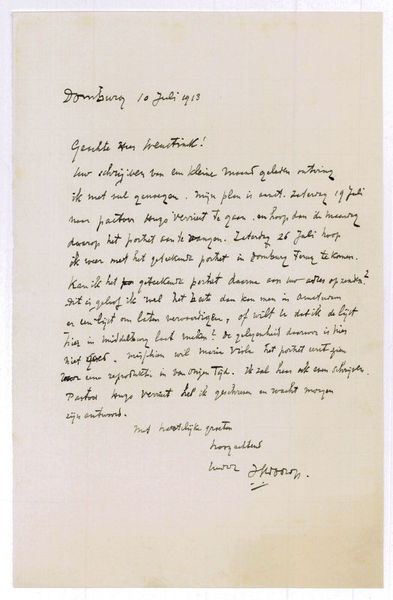 Domburg 10 Juli 1913
Geachte Heer
Uw schrijven van een kleine maand geleden ontving
ik met veel genoegen. Mijn plan is aanst. Zaterdag 19 Juli
naar pastoor Hugo Verriest te gaan en hoop dan de Maandag
daarop het portret aan te vangen. Zaterdag 26 Juli hoop
ik weer met het geteekende portret in Domburg terug te komen.
Kan ik het geteekende portret daarna aan uw adres opzenden?
Dit is geloof ik wel het beste dan kan men in Amsterdam
er een lijst om laten vervaardigen, of wilt U dat ik de lijst
hier in Middelburg laat maken? De gelegenheid daarvoor is hier
niet goed. Misschien wil Marie Viola het portret eerst zien
voor een reproductie in Van Onzen Tijd. Ik zal haar ook eens schrijven.
Pastoor Hugo Verriest heb ik geschreven en wacht morgen
zijn antwoord.
Met hartelijke groeten
hoogachtend